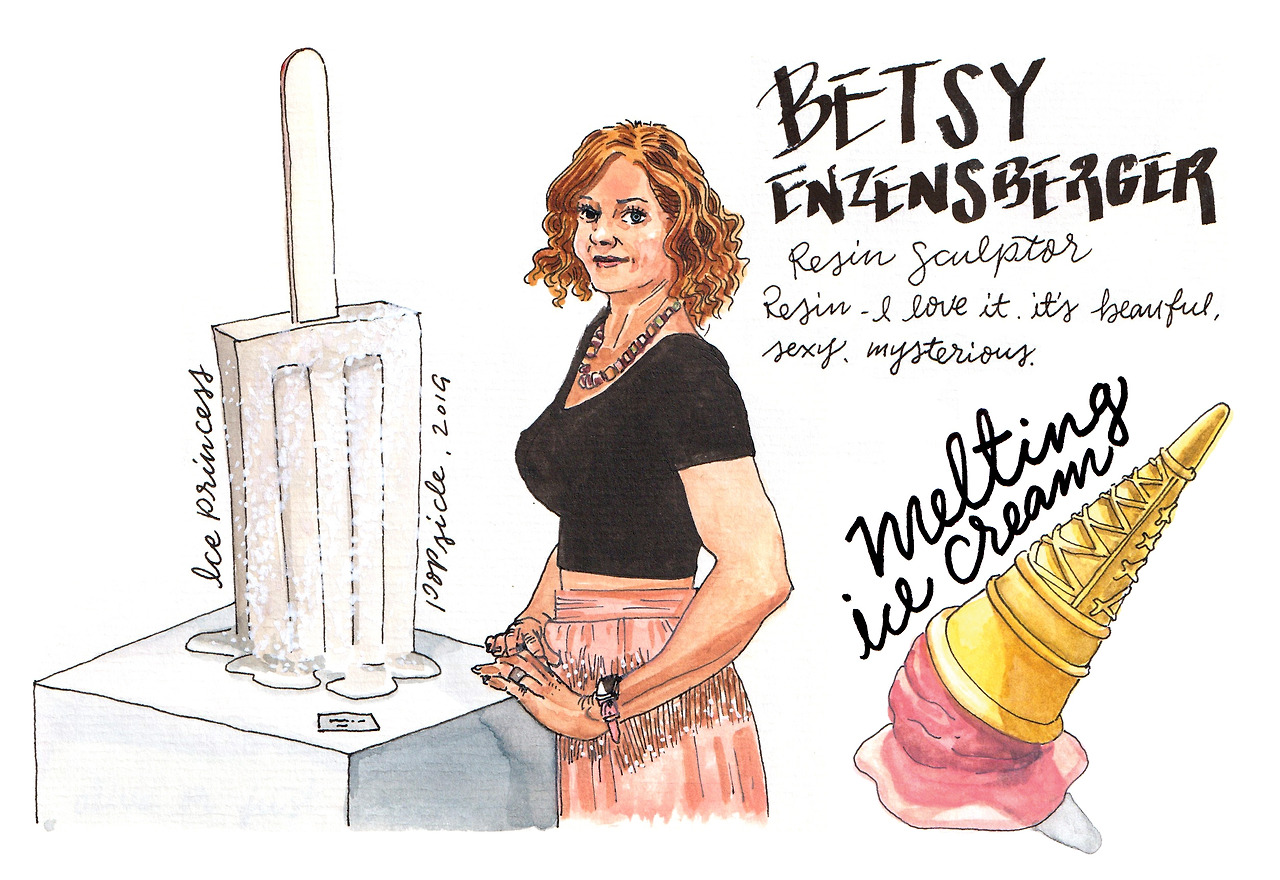 BETSY
ENZENSBERGER
Resin Sculptor
Resin - I love it. it's beautiful,
sexy. mysterious.
Ice princess
popsicle, 2019
melting
ice cream